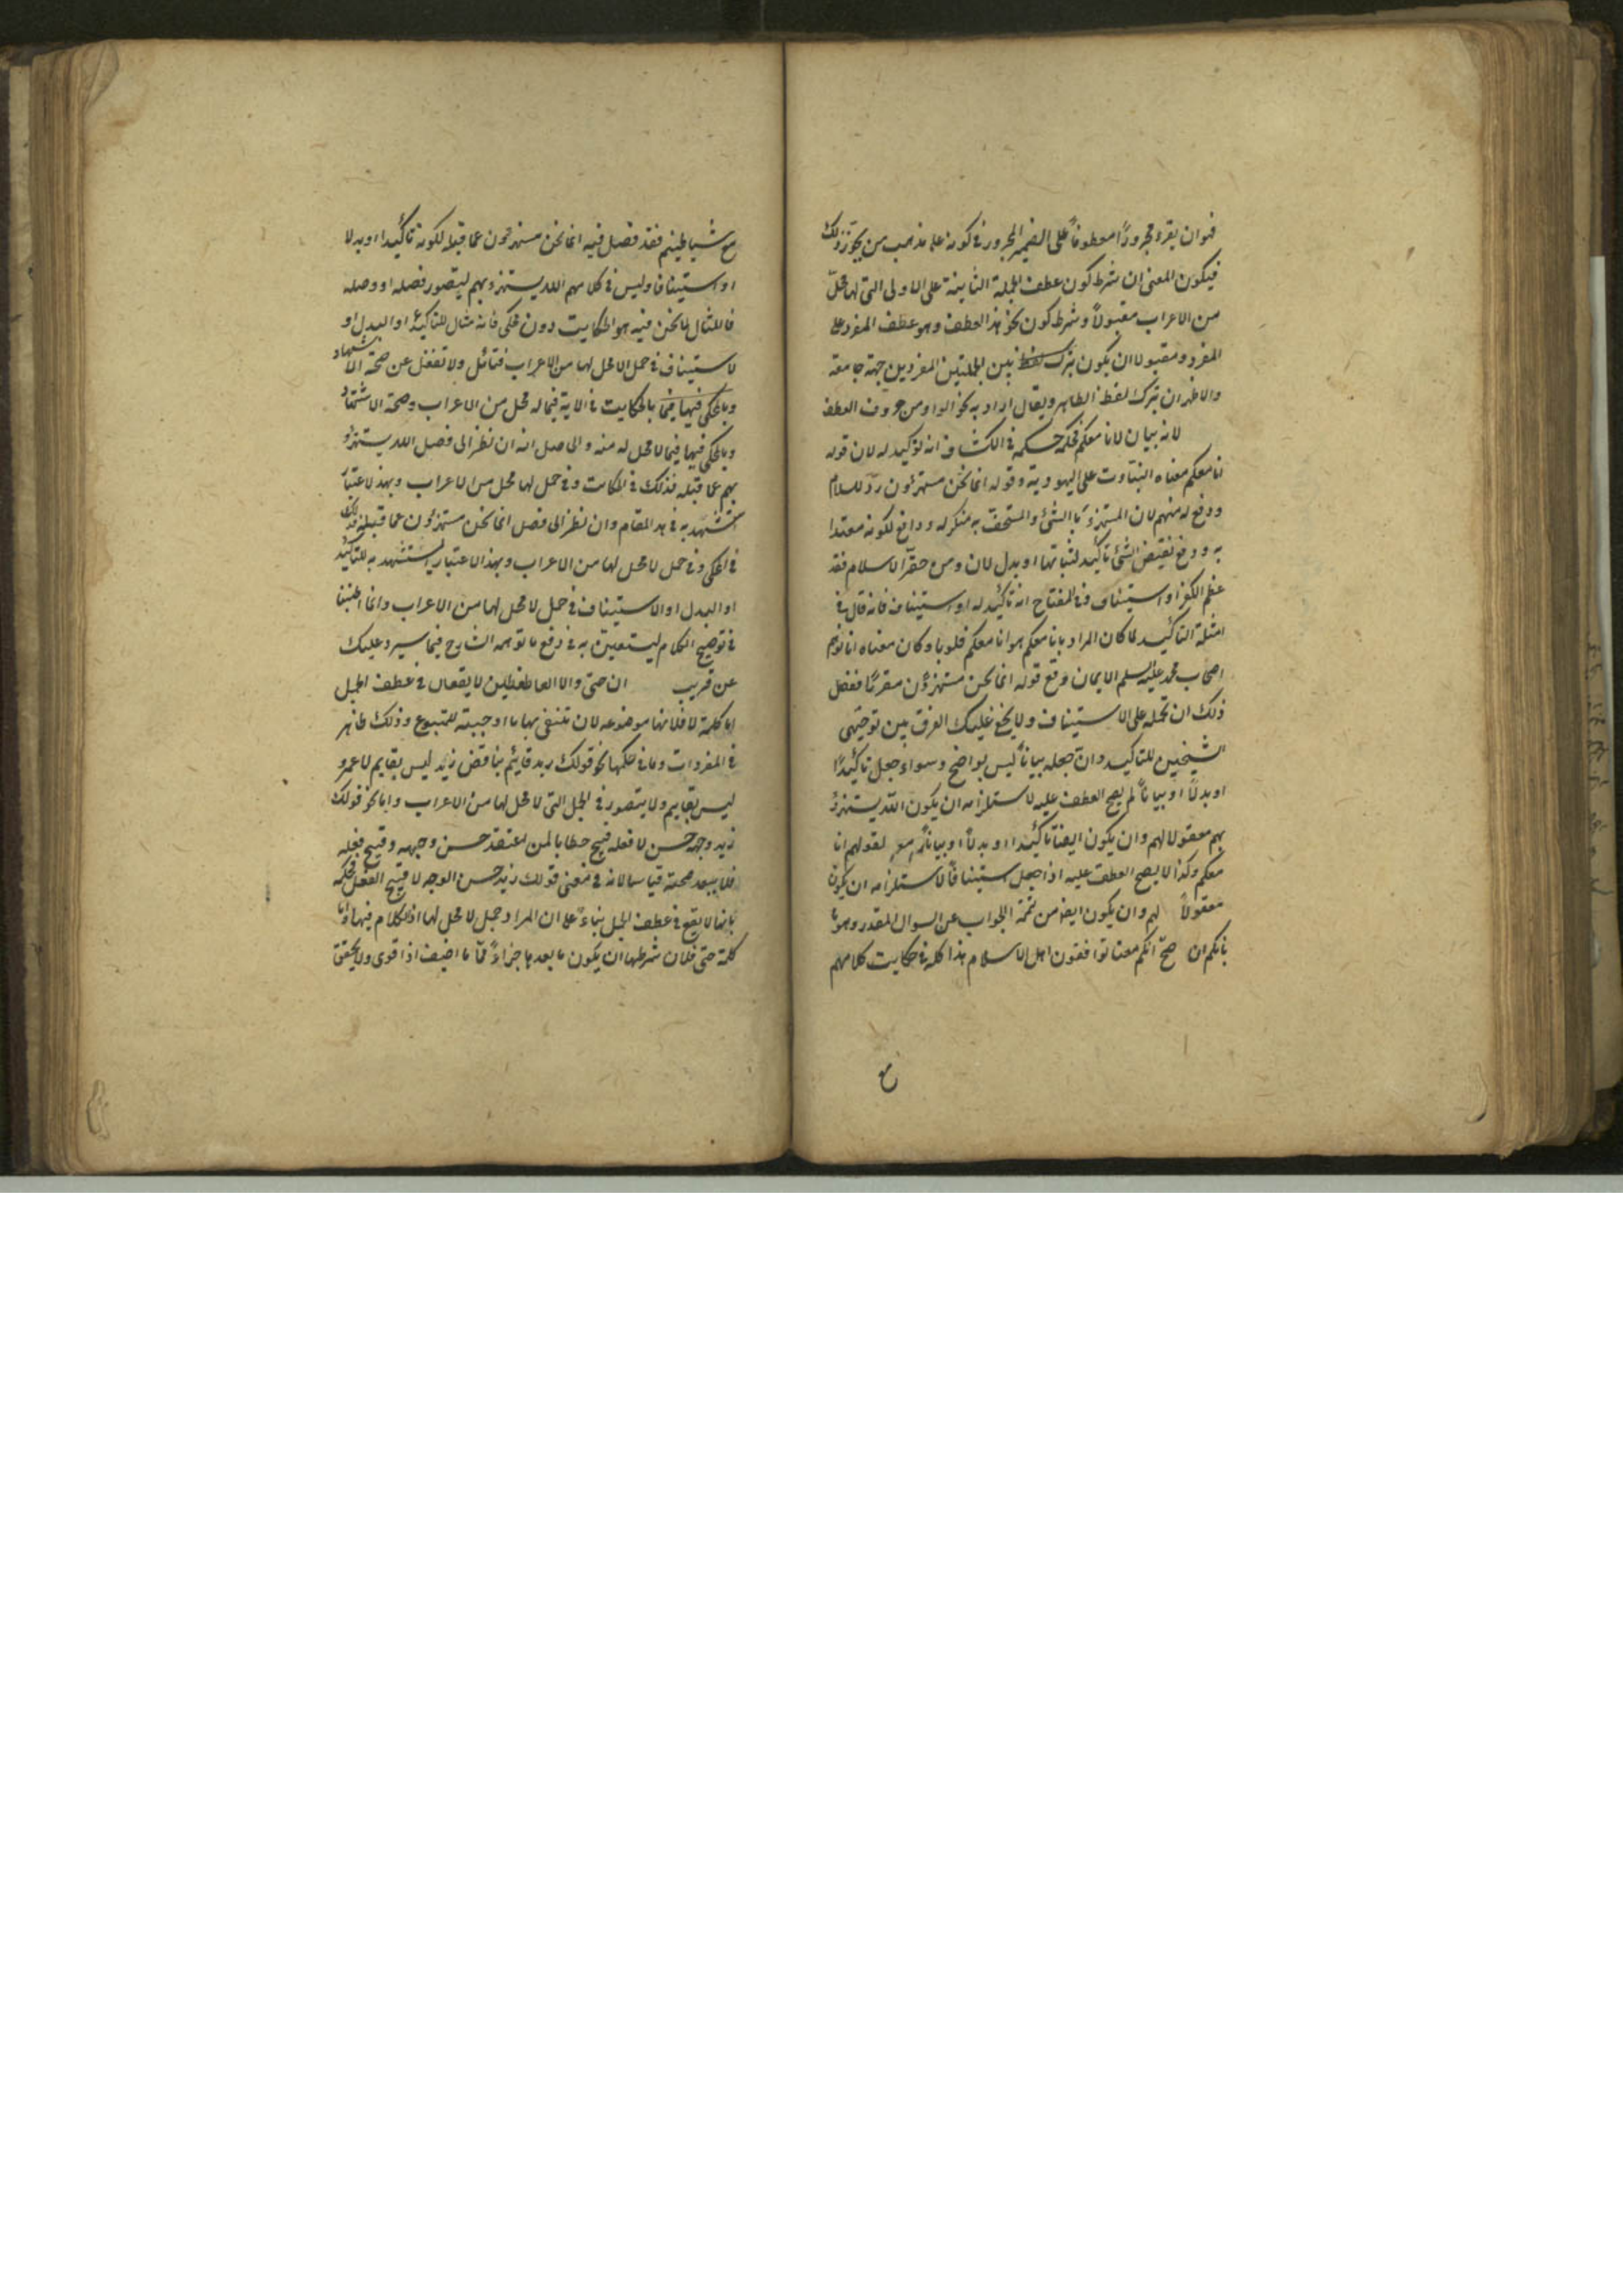 فهو ان يقرء مجرورًا معطوفًا على الضمير المجرور فى كونه على مذهب من يجوّز ذلك
فيكون المعنى ان شرط كون عطف الجملة الثانية على الاولى التى لها محلّ
من الاعراب مقبولًا وشرط كون نحو هذا العطف وهو عطف المفرد على
المفرد ومقبولا ان يكون بين الجملتين المفردين جهة جامعة
والاظهر ان يترك لفظ الظاهر ويقال اراد به نحو الواو من حروف العطف
لانه بيان لانا معكم فحكمه حكمه فى الكشاف انه توكيد له لان قوله
انا معكم معناه الثبات على اليهودية وقوله انما نحن مستهزئون ردّ للاسلام
ودفع له منهم لان المستهزء بالشئ والمستخفّ به منكر له ودافع لكونه معتدا
به ودفع نقيض الشئ تأكيد لثباته او بدل لان ومن حقّر الاسلام فقد
عظم الكفر او استيناف وفى المفتاح انه تأكيد له او استيناف فانه قال فى
امثلة التأكيد لما كان المراد بانا معكم هو انا معكم قلوبا وكان معناه انا نوهم
اصحاب محمد عليه السلم الايمان وقع قوله انما نحن مستهزؤن مقررًا ففصل
ذلك ان تحمله على الاستيناف ولا يخفى عليك الفرق بين توجيهى
الشيخين للتأكيد وان جعله بيانًا ليس بواضح وسواء جعل تأكيدًا
او بدلًا او بيانًا لم يصح العطف عليه لاستلزامه ان يكون الله يستهزئ
بهم مقولا لهم وان يكون ايضا تأكيدا او بدلًا او بيانًا لقولهم انا
معكم وكذا لا يصح العطف عليه اذا جعل استينافًا لاستلزامه ان يكون
مقولًا لهم وان يكون ايضا من تتمة الجواب عن السوال المقدر وهو ما
بالكم ان صحّ انكم معنا توافقون اهل الاسلام هذا كله فى حكايت كلامهم
مع
مع شياطينهم فقد فصل فيه انما نحن مستهزءون عما قبله لكونه تأكيدا او بدلا
او استينافا وليس فى كلامهم الله يستهزء بهم ليتصور فصله او وصله
فالمثال لما نحن فيه هو الحكايت دون المحكى فانه مثال للتأكيد او البدل او
لاستيناف فى جمل لا محل لها من الاعراب فتأمل ولا تغفل عن صحة الاستشهاد
وبالمحكى فيها فيما بالحكايت فى الاية فيما له محل من الاعراب وصحة الاستشهاد
وبالمحكى فيها فيما لا محل له منه والحاصل انه ان نظر الى فصل الله يستهزؤ
بهم عما قبله فذلك فى الحكايت وفى جمل لها محل من الاعراب وبهذا لاعتبار
استشهد به فى هذا المقام وان نظر الى فصل انما نحن مستهزؤن عما قبله فذلك
فى المحكى وفى جمل لا محل لها من الاعراب وبهذا الاعتبار يستشهد به للتأكيد
او البدل او الاستيناف فى جمل لا محل لها من الاعراب وانما اطنبنا
فى توضيح الكلام ليستعين به فى دفع ما توهمه الشارح فيما سيرد عليك
عن قريب ان حتى ولا العاطفتين لا يقعان فى عطف الجمل
اما كلمة لا فلانها موضوعه لان تنفى بها ما اوجبته للمتبوع وذلك ظاهر
فى المفردات وما فى حكمها نحو قولك زيد قائم يناقض زيد ليس بقايم لا عمرو
ليس بقايم ولا يتصور فى الجمل التى لا محل لها من الاعراب واما نحو قولك
زيد وجهه حسن لا فعله قبيح خطابا لمن اعتقد حسن وجهه وقبح فعله
فلا يبعد صحته قياسا لانه فى معنى قولك زيد حسن الوجه لا قبيح الفعل فحكمه
بانها لا يقع فى عطف الجمل بناءً على ان المراد جمل لا محل لها اذ الكلام فيها واما
كلمة حتى فلان شرطها ان يكون ما بعدها جزاءً مما اضعف او اقوى ولا يتحقق